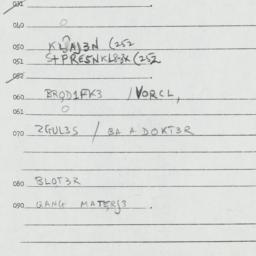 032
040
050 KL?AJ3N (252
051 S+PRESNKLR3K (252
052
060 BROD1FK3 / VORCL,
061
070 ZGUL3S / BA A DOKT3R
080 BLOT3R
090 GANG MATERJ3